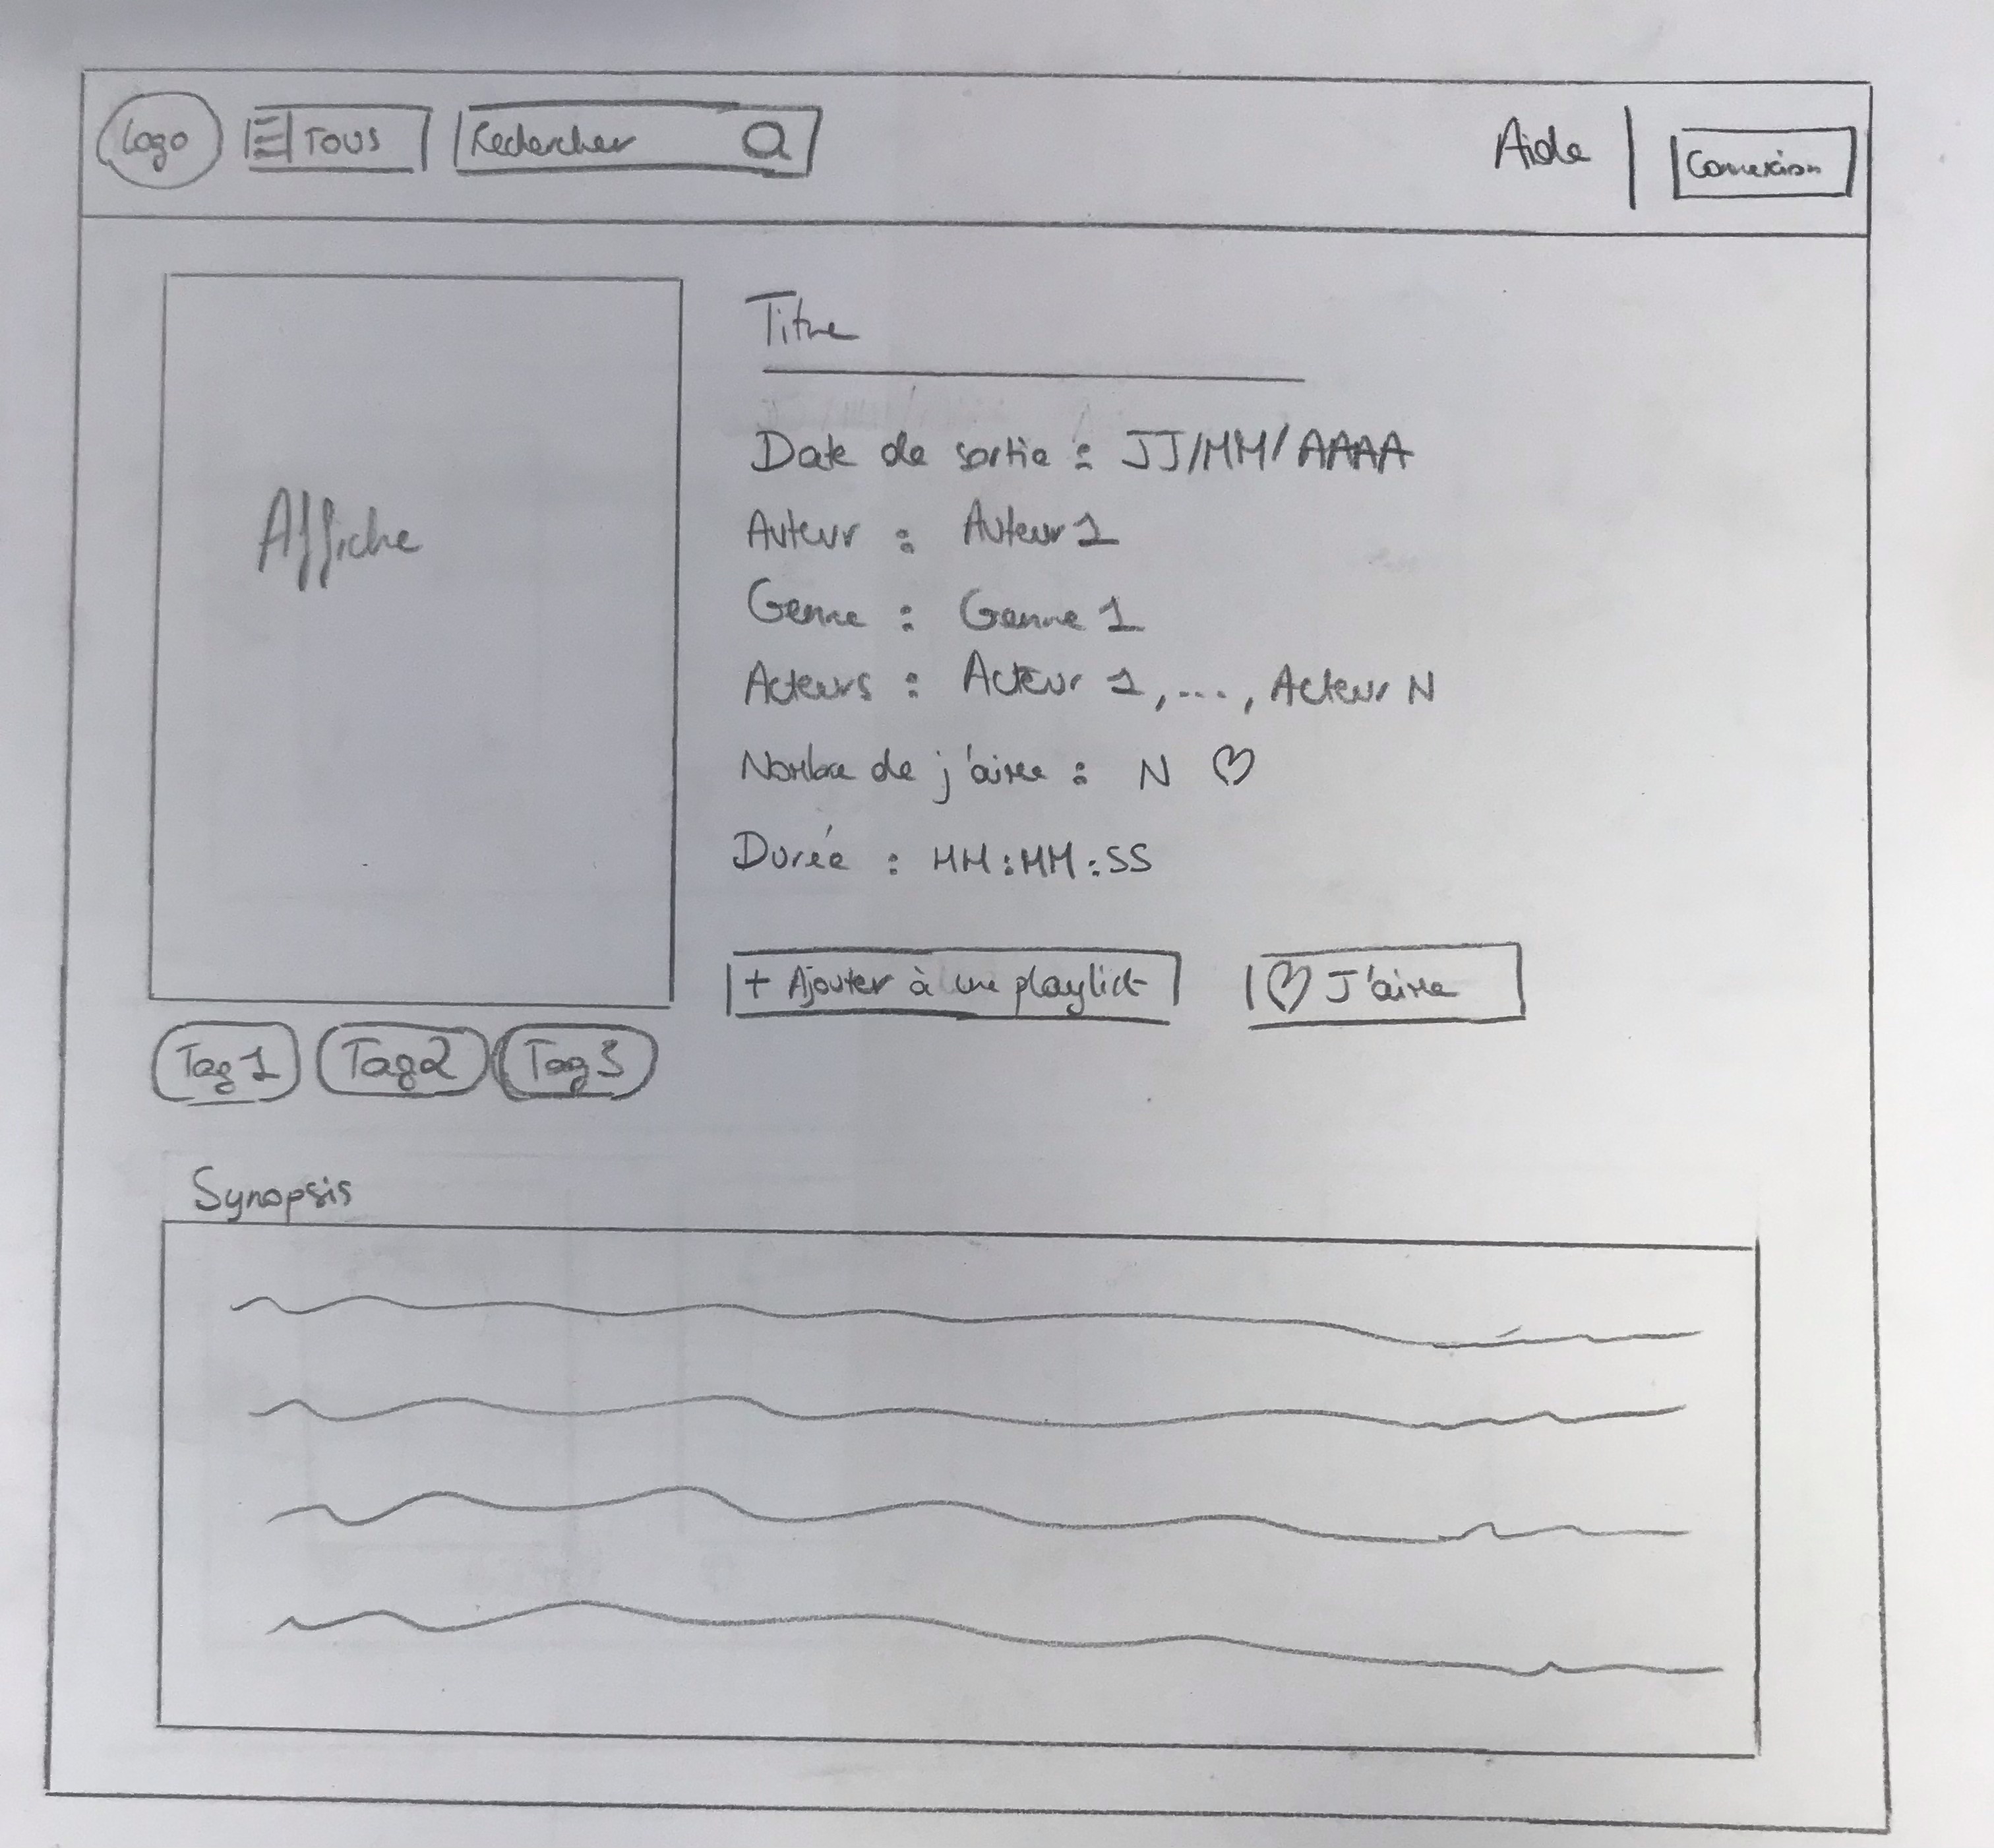 Logo TOUS Rechercher Aide Connexion
Titre
Affiche
Date de sortie : JJ/MM/AAAA
Auteur : Auteur 1
Genre : Genre 1
Acteurs : Acteur 1, ..., Acteur N
Nombre de j'aime : N ♡
Durée : HH:MM:SS
+ Ajouter à une playlist ♡ J'aime
Tag 1 Tag 2 Tag 3
Synopsis